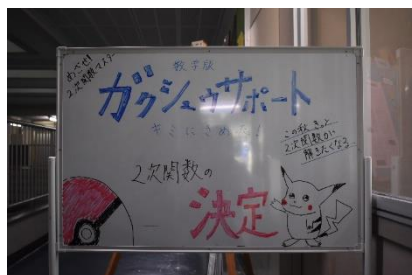 めざせ!
2次関数マスター
数学版
ガクシュウサポート
キミにきめた!
この秋、きっと
2次関数が
解きたくなる
2次関数の
決定